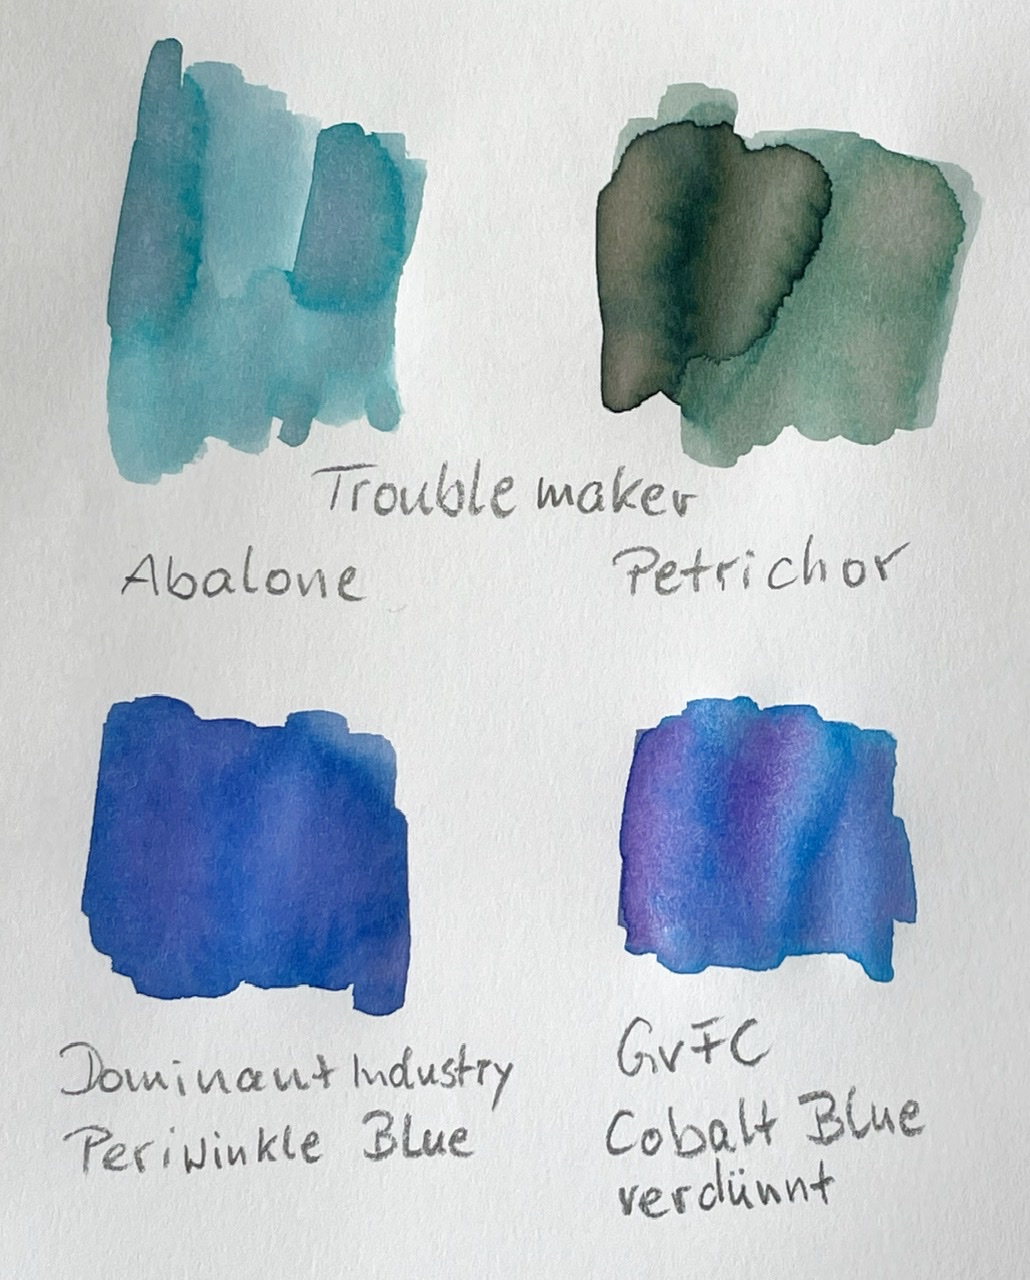 Troublemaker
Abalone
Petrichor
Dominant Industry
Periwinkle Blue
GvFC
Cobalt Blue
verdünnt